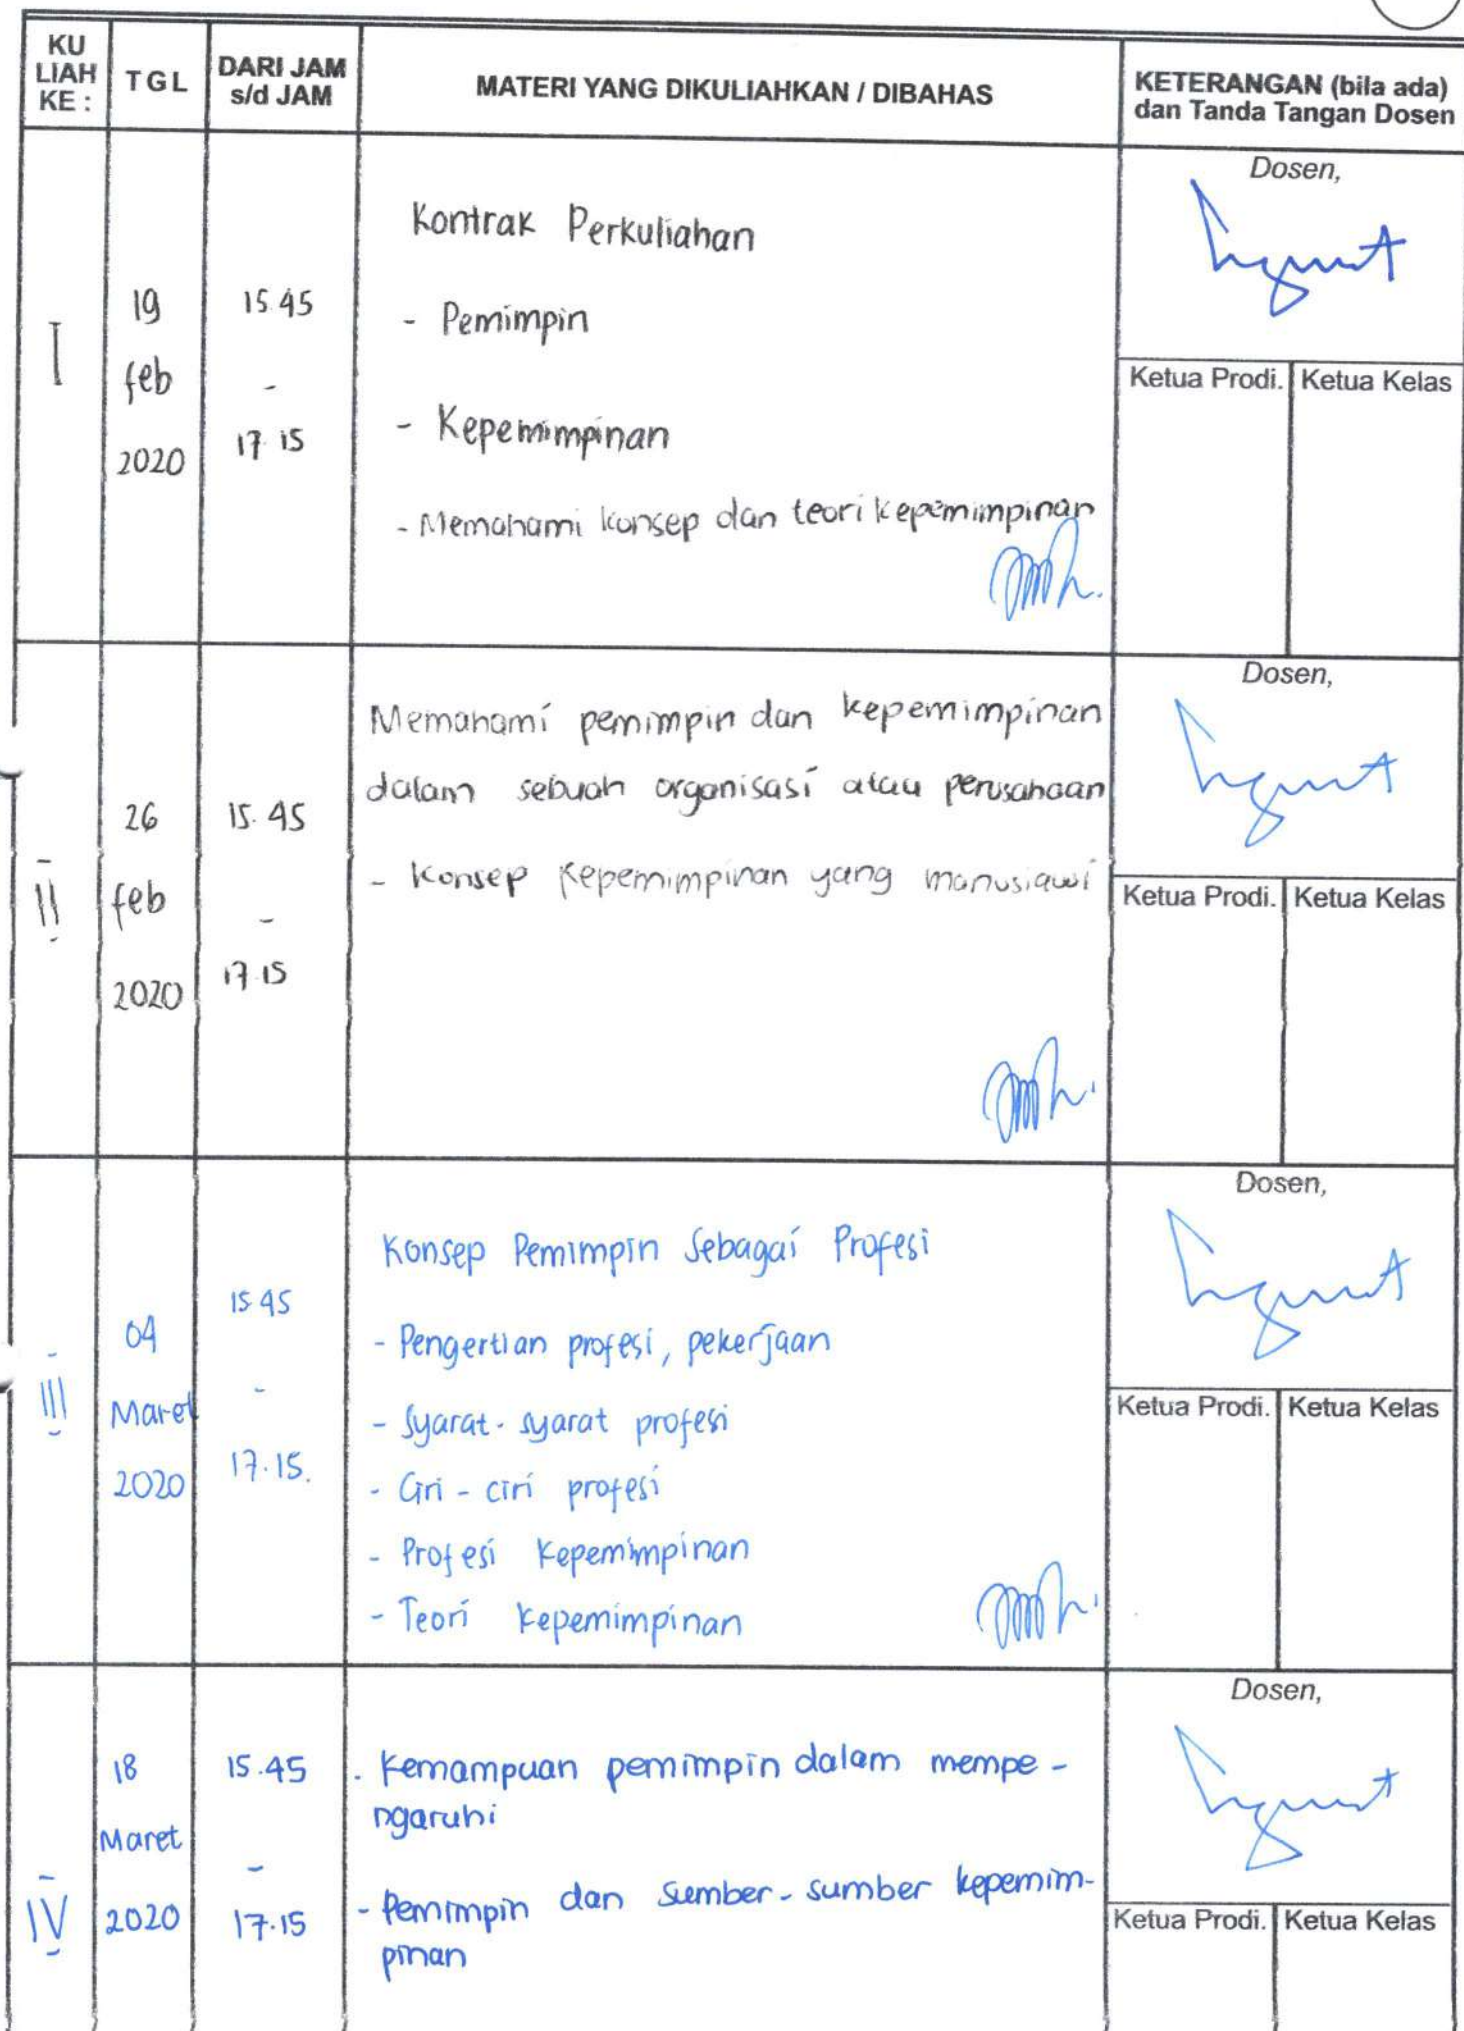 KU LIAH KE :
TGL
DARI JAM s/d JAM
MATERI YANG DIKULIAHKAN / DIBAHAS
KETERANGAN (bila ada) dan Tanda Tangan Dosen
I
19
feb
2020
15.45
-
17.15
Kontrak Perkuliahan
- Pemimpin
- Kepemimpinan
- Memahami konsep dan teori kepemimpinan
Dosen,
Ketua Prodi.
Ketua Kelas
II
26
feb
2020
15.45
-
17.15
Memahami pemimpin dan kepemimpinan
dalam sebuah organisasi atau perusahaan
- Konsep Kepemimpinan yang manusiawi
Dosen,
Ketua Prodi.
Ketua Kelas
III
04
Maret
2020
15.45
-
17.15.
Konsep Pemimpin Sebagai Profesi
- Pengertian profesi, pekerjaan
- Syarat-syarat profesi
- Ciri-ciri profesi
- Profesi Kepemimpinan
- Teori Kepemimpinan
Dosen,
Ketua Prodi.
Ketua Kelas
IV
18
Maret
2020
15.45
-
17.15
. Kemampuan pemimpin dalam mempe-
ngaruhi
- Pemimpin dan Sumber-sumber kepemim-
pinan
Dosen,
Ketua Prodi.
Ketua Kelas